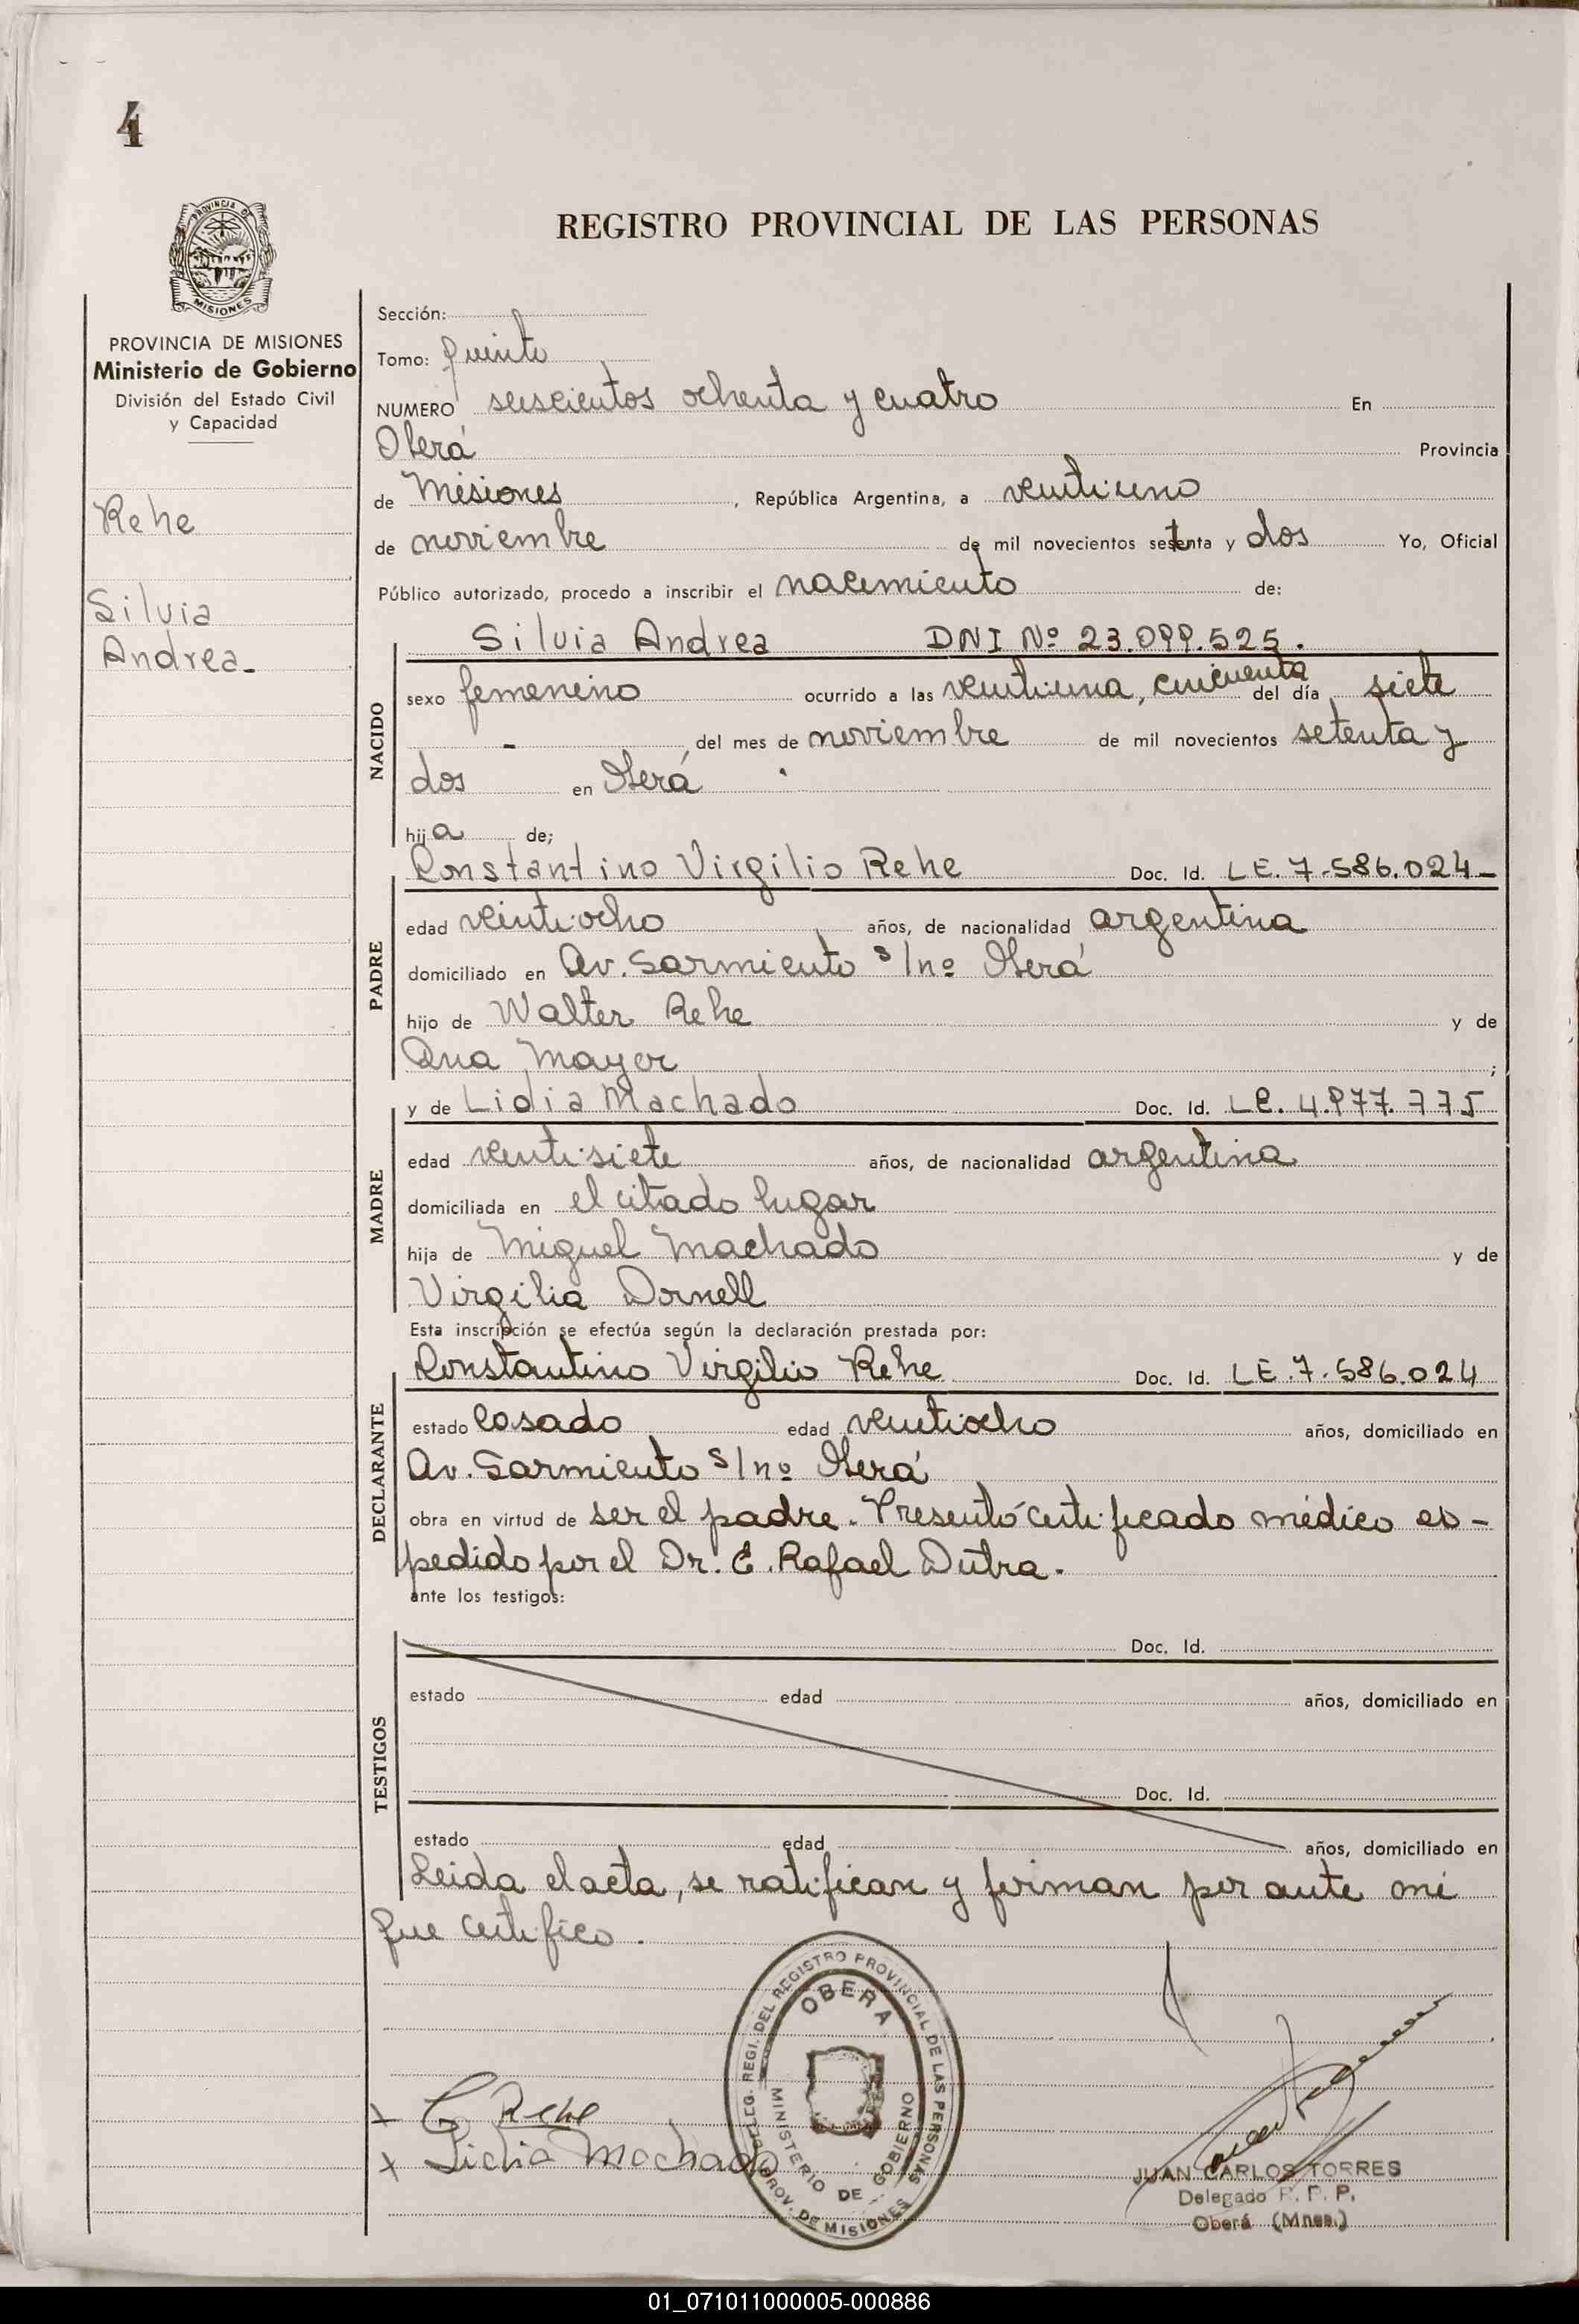 4
PROVINCIA DE
MISIONES
REGISTRO PROVINCIAL DE LAS PERSONAS
PROVINCIA DE MISIONES
Ministerio de Gobierno
División del Estado Civil
y Capacidad
Rehe
Silvia
Andrea-
Sección:
Tomo: quinto
NUMERO seiscientos ochenta y cuatro En
Oberá Provincia
de Misiones, República Argentina, a veintiuno
de noviembre de mil novecientos setenta y dos Yo, Oficial
Público autorizado, procedo a inscribir el nacimiento de:
NACIDO
Silvia Andrea DNI Nº 23.099.525.
sexo femenino ocurrido a las veintiuna, cincuenta del día siete
- del mes de noviembre de mil novecientos setenta y
dos en Oberá
hija de;
PADRE
Constantino Virgilio Rehe Doc. Id. LE. 7.586.024-
edad veintiocho años, de nacionalidad argentina
domiciliado en Av. Sarmiento s/nº Oberá
hijo de Walter Rehe y de
Ana Mayer;
MADRE
y de Lidia Machado Doc. Id. LC. 4.977.775
edad veintisiete años, de nacionalidad argentina
domiciliada en el citado lugar
hija de Miguel Machado y de
Virgilia Dornell
Esta inscripción se efectúa según la declaración prestada por:
DECLARANTE
Constantino Virgilio Rehe Doc. Id. LE. 7.586.024
estado casado edad veintiocho años, domiciliado en
Av. Sarmiento s/nº Oberá
obra en virtud de ser el padre. Presentó certificado médico ex-
pedido por el Dr. E. Rafael Dutra.
ante los testigos:
TESTIGOS
Doc. Id.
estado edad años, domiciliado en
Doc. Id.
estado edad años, domiciliado en
Leida el acta, se ratifican y firman por ante mi
que certifico.
DELEG. REGI. DEL REGISTRO PROVINCIAL DE LAS PERSONAS
OBERA
MINISTERIO DE GOBIERNO
PROV. DE MISIONES
x C Rehe
x Lidia Machado
JUAN CARLOS TORRES
Delegado R. P. P.
Oberá (Mnes.)
01_071011000005-000886